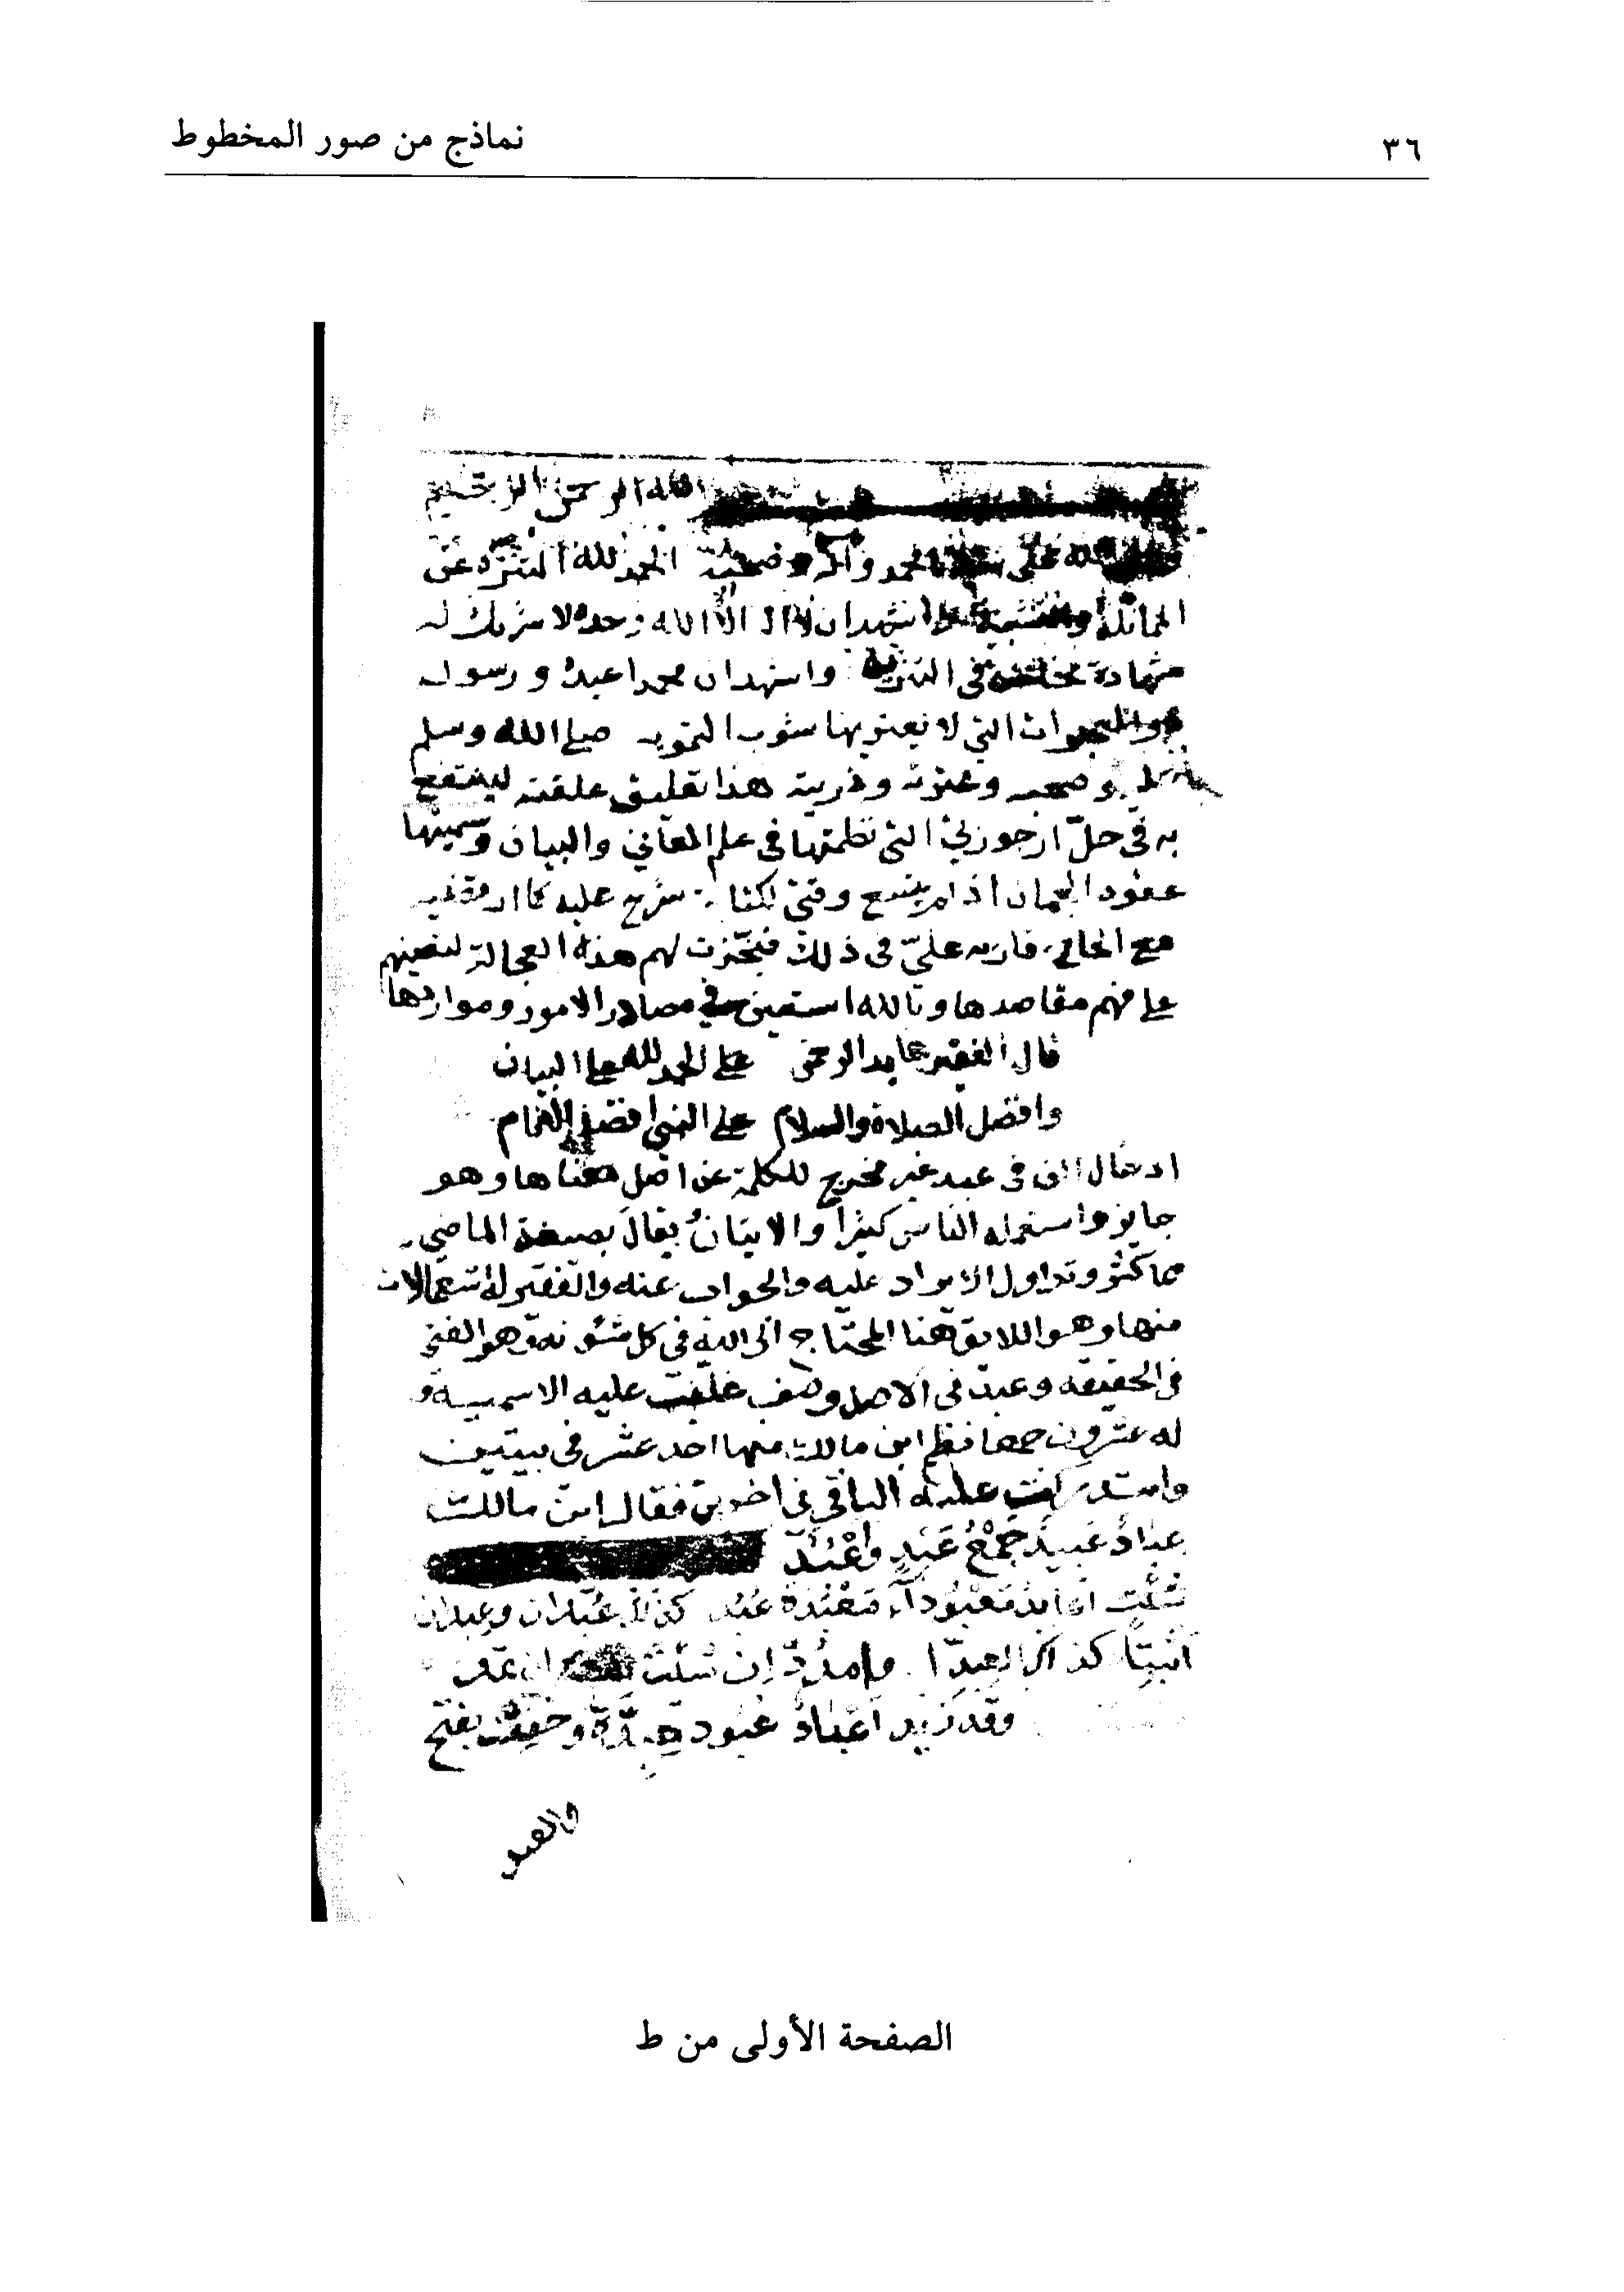 ٣٦
نماذج من صور المخطوط
الله الرحمن الرحيم
الله على محمد واله وصحبه الحمد لله المتنزه عن
المماثلة اشهد ان لا اله الا الله وحده لا شريك له
شهادة في التنزيه واشهد ان محمدا عبده ورسوله
التي لا يعتريها شوب التمويه صلى الله وسلم
وصحبه وعترته وذريته هذا تعليق علقته لينتفع
به في حل ارجوزتي التي نظمتها في علم المعاني والبيان وسميتها
عقود الجمان اذ لم يتسع وقتي لكتابة شرح عليه كما ارتضيه
مع الحا في ذلك فنجزت لهم هذه العجالة لتعينهم
على فهم مقاصدها وبالله استعين في مصادر الامور ومواردها
قال الفقير عابد الرحمن الحمد لله على البيان
وافضل الصلاة والسلام على النبي افصح الانام
ادخال الف في عبد غير مخرج للكلمة عن اصل معناها وهو
جايز واستعمله الناس كثيرا والاتيان بقال بصيغة الماضي
مما كثر وتداول الايراد عليه والجواب عنه والفقير له استعمالات
منها وهو اللايق هنا المحتاج الى الله في كل شئونه وهو الفقير
في الحقيقة وعبد في الاصل وصف غلبت عليه الاسمية و
له عشرون جمعا نظم ابن مالك منها احد عشر في بيتين
واستدركت عليه الباقي في اخرين فقال ابن مالك
عباد عبيد جمع عبد واعبد
اعابد معبوداء معبدة عبد كذلك عبدان وعبدان
اثبتا كذاك العبدا وامدد ان شئت ان تمد
وقد زيد اعباد عبود عبدة وخففت بفتح
والعبد
الصفحة الأولى من ط